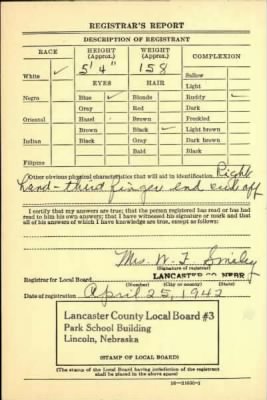 REGISTRAR'S REPORT
DESCRIPTION OF REGISTRANT
RACE HEIGHT (Approx.) WEIGHT (Approx.) COMPLEXION
White ✓ 5' 4" 158 Sallow
EYES HAIR Light
Negro Blue ✓ Blonde Ruddy ✓
Gray Red Dark
Oriental Hazel Brown Freckled
Brown Black ✓ Light brown
Indian Black Gray Dark brown
Bald Black
Filipino
Other obvious physical characteristics that will aid in identification Right
hand - third finger end cut off
I certify that my answers are true; that the person registered has read or has had
read to him his own answers; that I have witnessed his signature or mark and that
all of his answers of which I have knowledge are true, except as follows:
Mrs. W. F. Smiley
(Signature of registrar)
Registrar for Local Board LANCASTER CO. NEBR
(Number) (City or county) (State)
Date of registration April 25, 1942
Lancaster County Local Board #3
Park School Building
Lincoln, Nebraska
(STAMP OF LOCAL BOARD)
(The stamp of the Local Board having jurisdiction of the registrant
shall be placed in the above space)